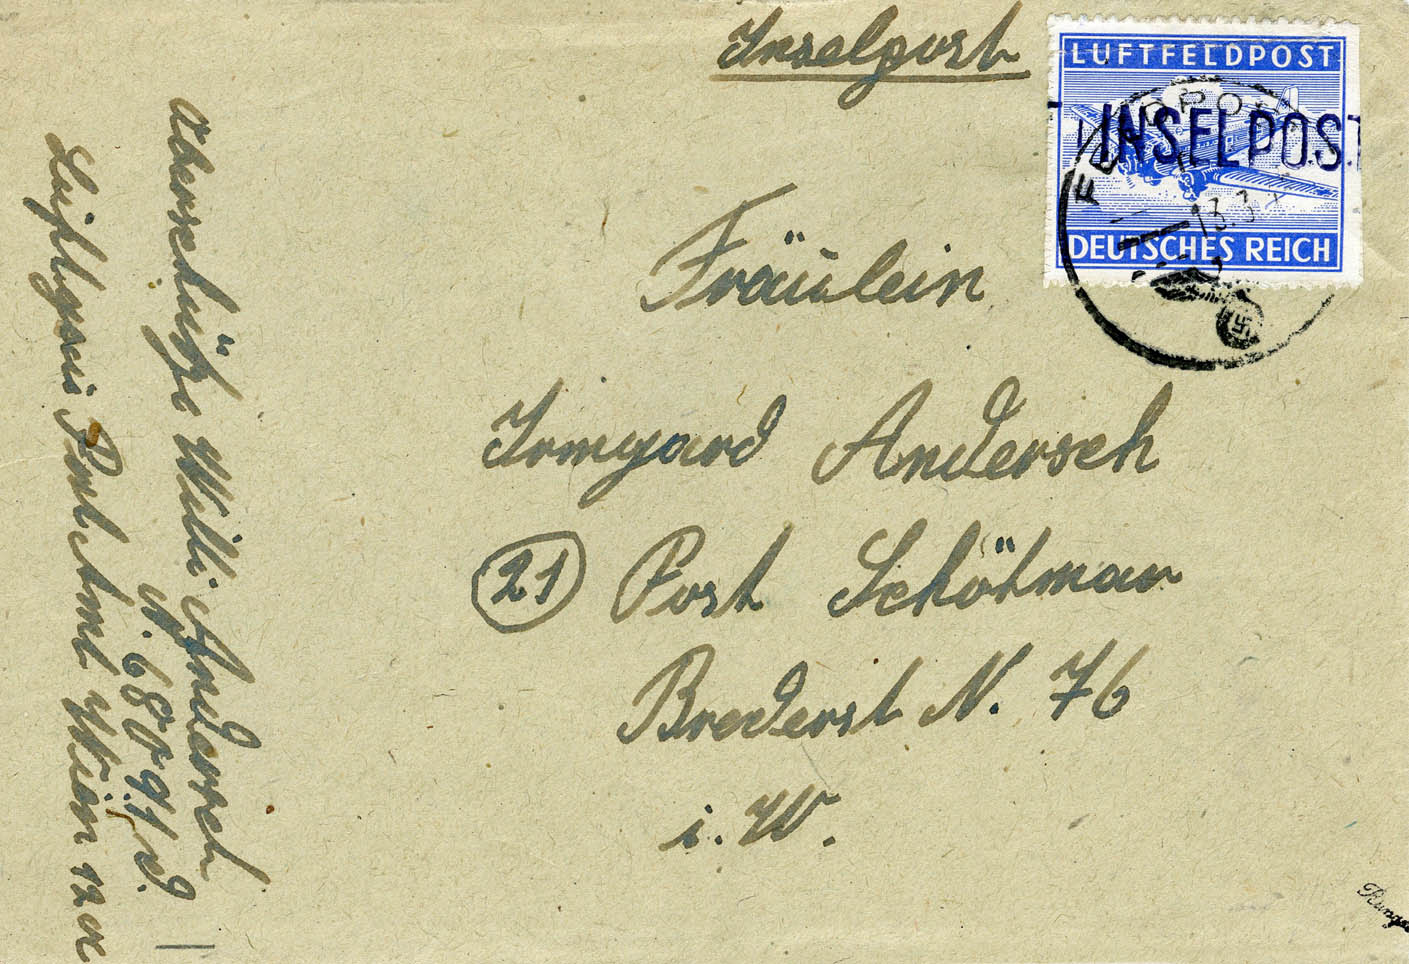 Inselpost
LUFTFELDPOST
INSELPOST
FELDPOST
13.3
DEUTSCHES REICH
Fräulein
Irmgard Andersch
(21) Post Schötmar
Brederst N. 76
i. W.
Obersch Willi Andersch
N. 68091 d.
Luftgau Post Amt Wien